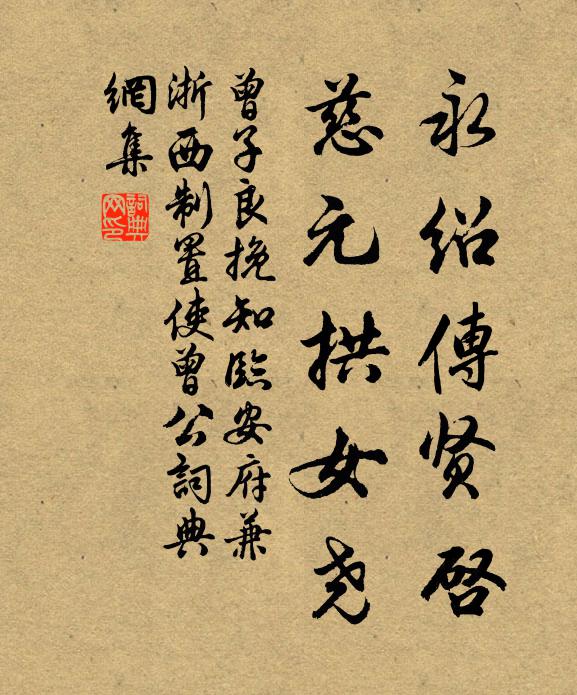 永绍傳贤啓
慈元拱女尧
曾子良挽知臨安府兼
浙西制置使曾公詞典
網集
詞典
网印